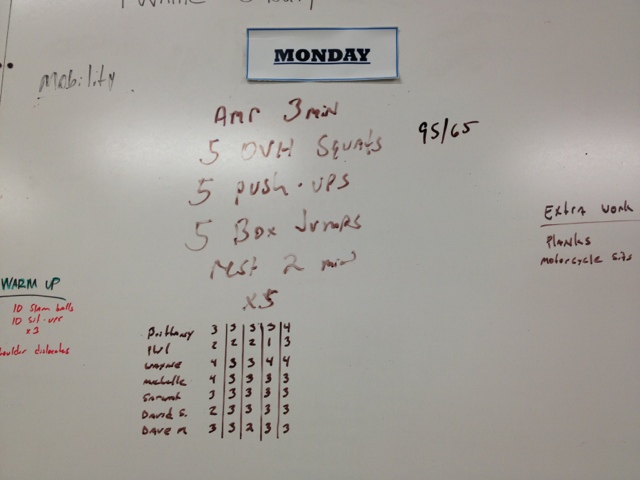 MONDAY
Mobility
AMP 3 min
5 OVH Squats 95/65
5 push-ups
5 Box Jumps
rest 2 min
x5
Extra Work
Planks
Motorcycle sits
WARM UP
10 Slam balls
10 Sit-ups
x3
houlder dislocates
Brittany 3 3 3 3 4
2 2 2 1 3
WAYNE 4 3 3 4 4
Michelle 4 3 3 3 3
Sarah 3 3 3 3 3
David S. 2 3 3 3 3
Dave M 3 3 2 3 3